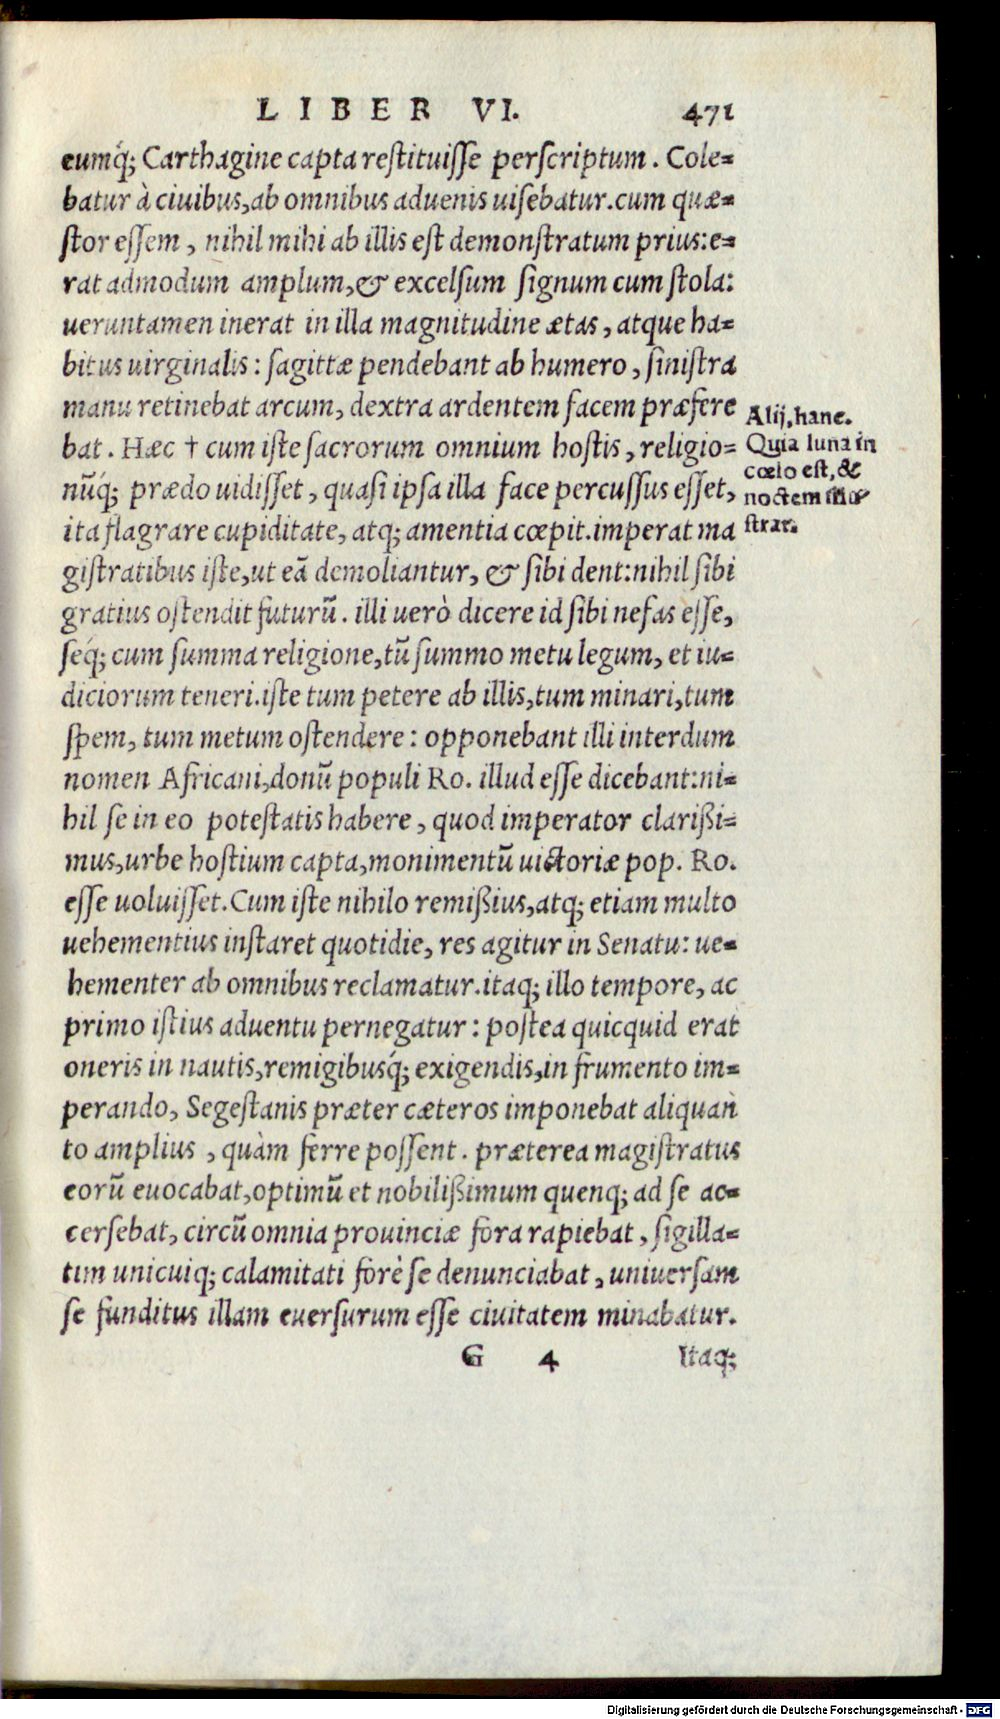 LIBER VI. 471
eumq́; Carthagine capta restituisse perscriptum. Cole=
batur à ciuibus, ab omnibus aduenis uisebatur. cum quæ=
stor essem, nihil mihi ab illis est demonstratum prius: e=
rat admodum amplum, & excelsum signum cum stola:
ueruntamen inerat in illa magnitudine ætas, atque ha=
bitus uirginalis: sagittæ pendebant ab humero, sinistra
manu retinebat arcum, dextra ardentem facem præfere
bat. Hæc † cum iste sacrorum omnium hostis, religio=
nũq́; prædo uidisset, quasi ipsa illa face percussus esset,
ita flagrare cupiditate, atq; amentia cœpit. imperat ma
gistratibus iste, ut eã demoliantur, & sibi dent: nihil sibi
gratius ostendit futurũ. illi uerò dicere id sibi nefas esse,
seq́; cum summa religione, tũ summo metu legum, et iu=
diciorum teneri. iste tum petere ab illis, tum minari, tum
spem, tum metum ostendere: opponebant illi interdum
nomen Africani, donũ populi Ro. illud esse dicebant: ni=
hil se in eo potestatis habere, quod imperator clarißi=
mus, urbe hostium capta, monimentũ uictoriæ pop. Ro.
esse uoluisset. Cum iste nihilo remißius, atq; etiam multo
uehementius instaret quotidie, res agitur in Senatu: ue=
hementer ab omnibus reclamatur. itaq; illo tempore, ac
primo istius aduentu pernegatur: postea quicquid erat
oneris in nautis, remigibusq́; exigendis, in frumento im=
perando, Segestanis præter cæteros imponebat aliquan
to amplius, quàm ferre possent. præterea magistratus
eorũ euocabat, optimũ et nobilißimum quenq; ad se ac=
cersebat, circũ omnia prouinciæ fora rapiebat, sigilla=
tim unicuiq; calamitati forè se denunciabat, uniuersam
se funditus illam euersurum esse ciuitatem minabatur.
G 4 Itaq;
Alij, hanc.
Quia luna in
cœlo est, &
noctem
strat.
Digitalisierung gefördert durch die Deutsche Forschungsgemeinschaft - DFG